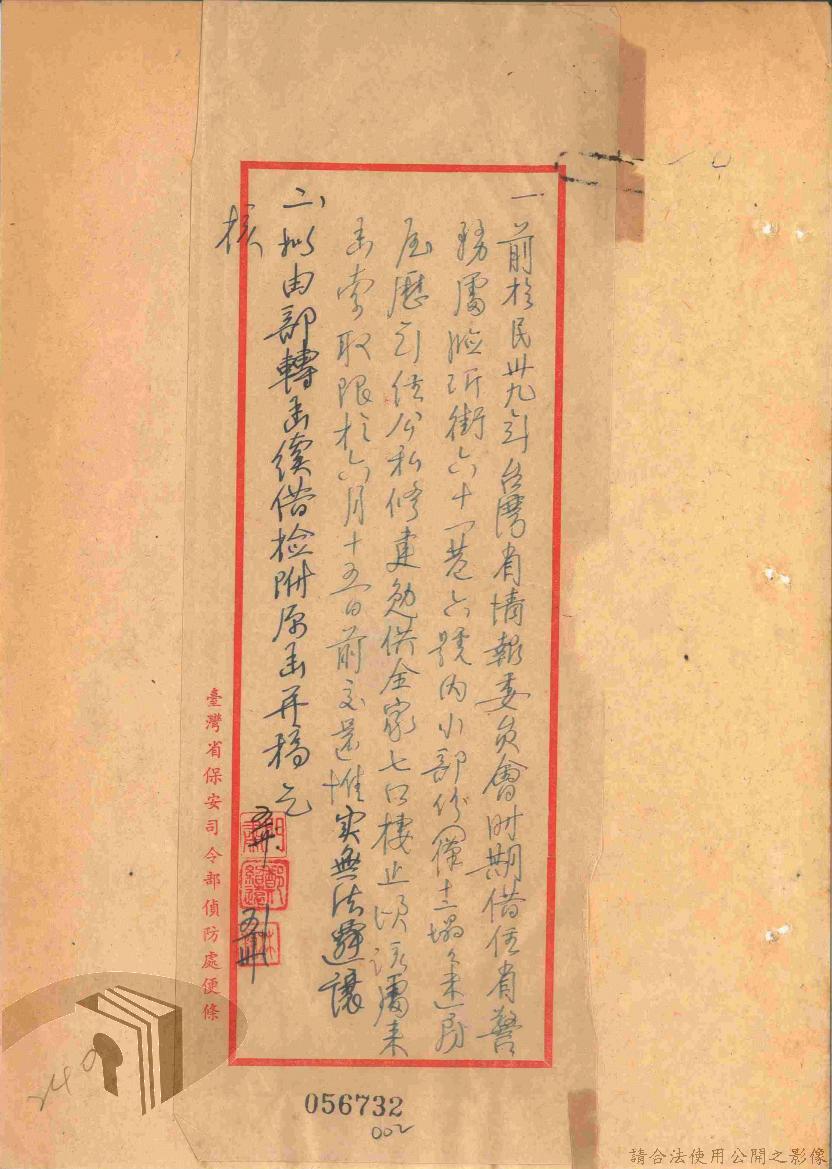 一前於民卅九年台灣省情報委員會时期借住省警
務處臨沂街六十一巷六號內小部份(僅十二塌々米)房
屋歷年經公私修建勉供全家七口棲止頃該處来
函索取限於六月十五日前交還惟实無法遷讓
二、拟由部轉函續借检附原函并稿乞
核
五卅
五卅
臺灣省保安司令部偵防處便條
249
056732
002
請合法使用公開之影像